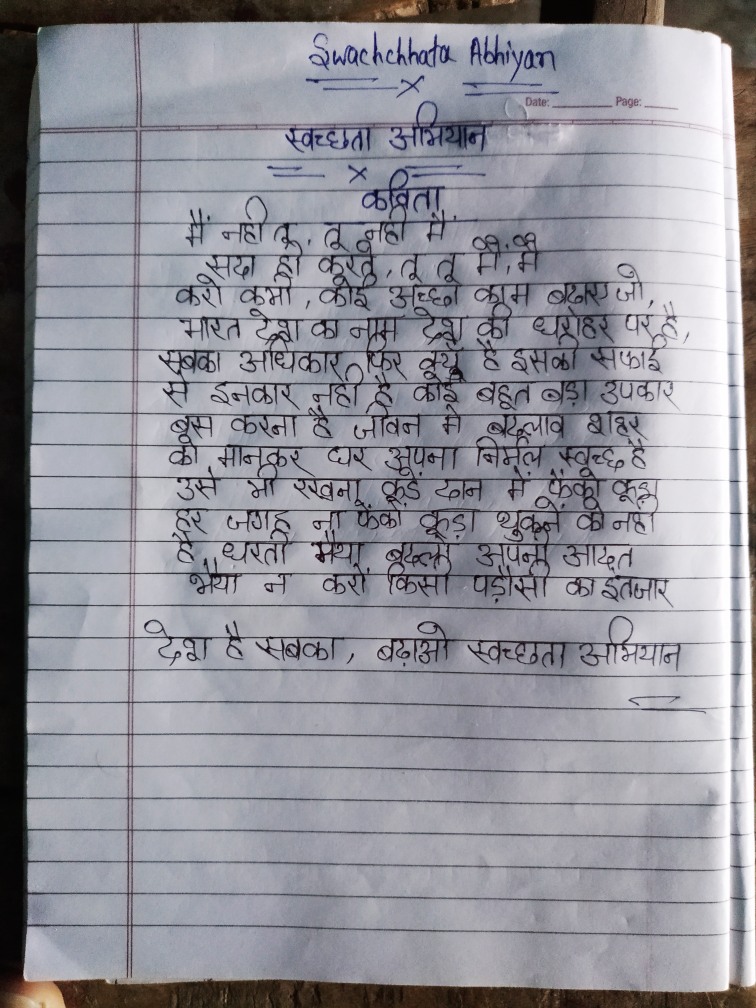 Swachchhata Abhiyan
Date: Page:
स्वच्छता अभियान
कविता
मैं नही तू, तू नही मैं,
सदा ही करते, तू तू मैं, मैं
करो कभी, कोई अच्छा काम बढाए जो,
भारत देश का नाम देश की धरोहर पर है,
सबका अधिकार फिर क्यूँ है इसकी सफाई
से इनकार नही है कोई बहूत बड़ा उपकार
बस करना है जीवन में बदलाव शहर
को मानकर घर अपना निर्मल स्वच्छ है
उसे भी रखना कूड़े दान में फैंको कूड़ा
हर जगह ना फैंको कूड़ा थुकने को नही
है धरती मैया बदलो अपनी आदत
भैया न करों किसी पड़ौसी का इंतजार
देश है सबका, बढ़ाओ स्वच्छता अभियान